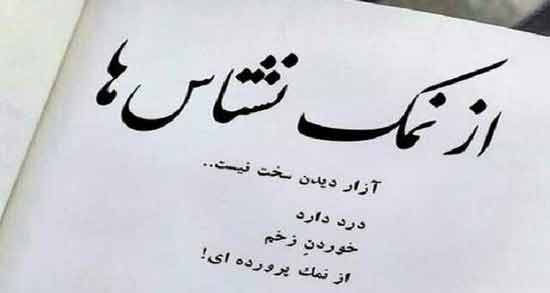 از نمک نشناس ها
آزار دیدن سخت نیست..
درد دارد
خوردنِ زخم
از نمک پرورده ای!